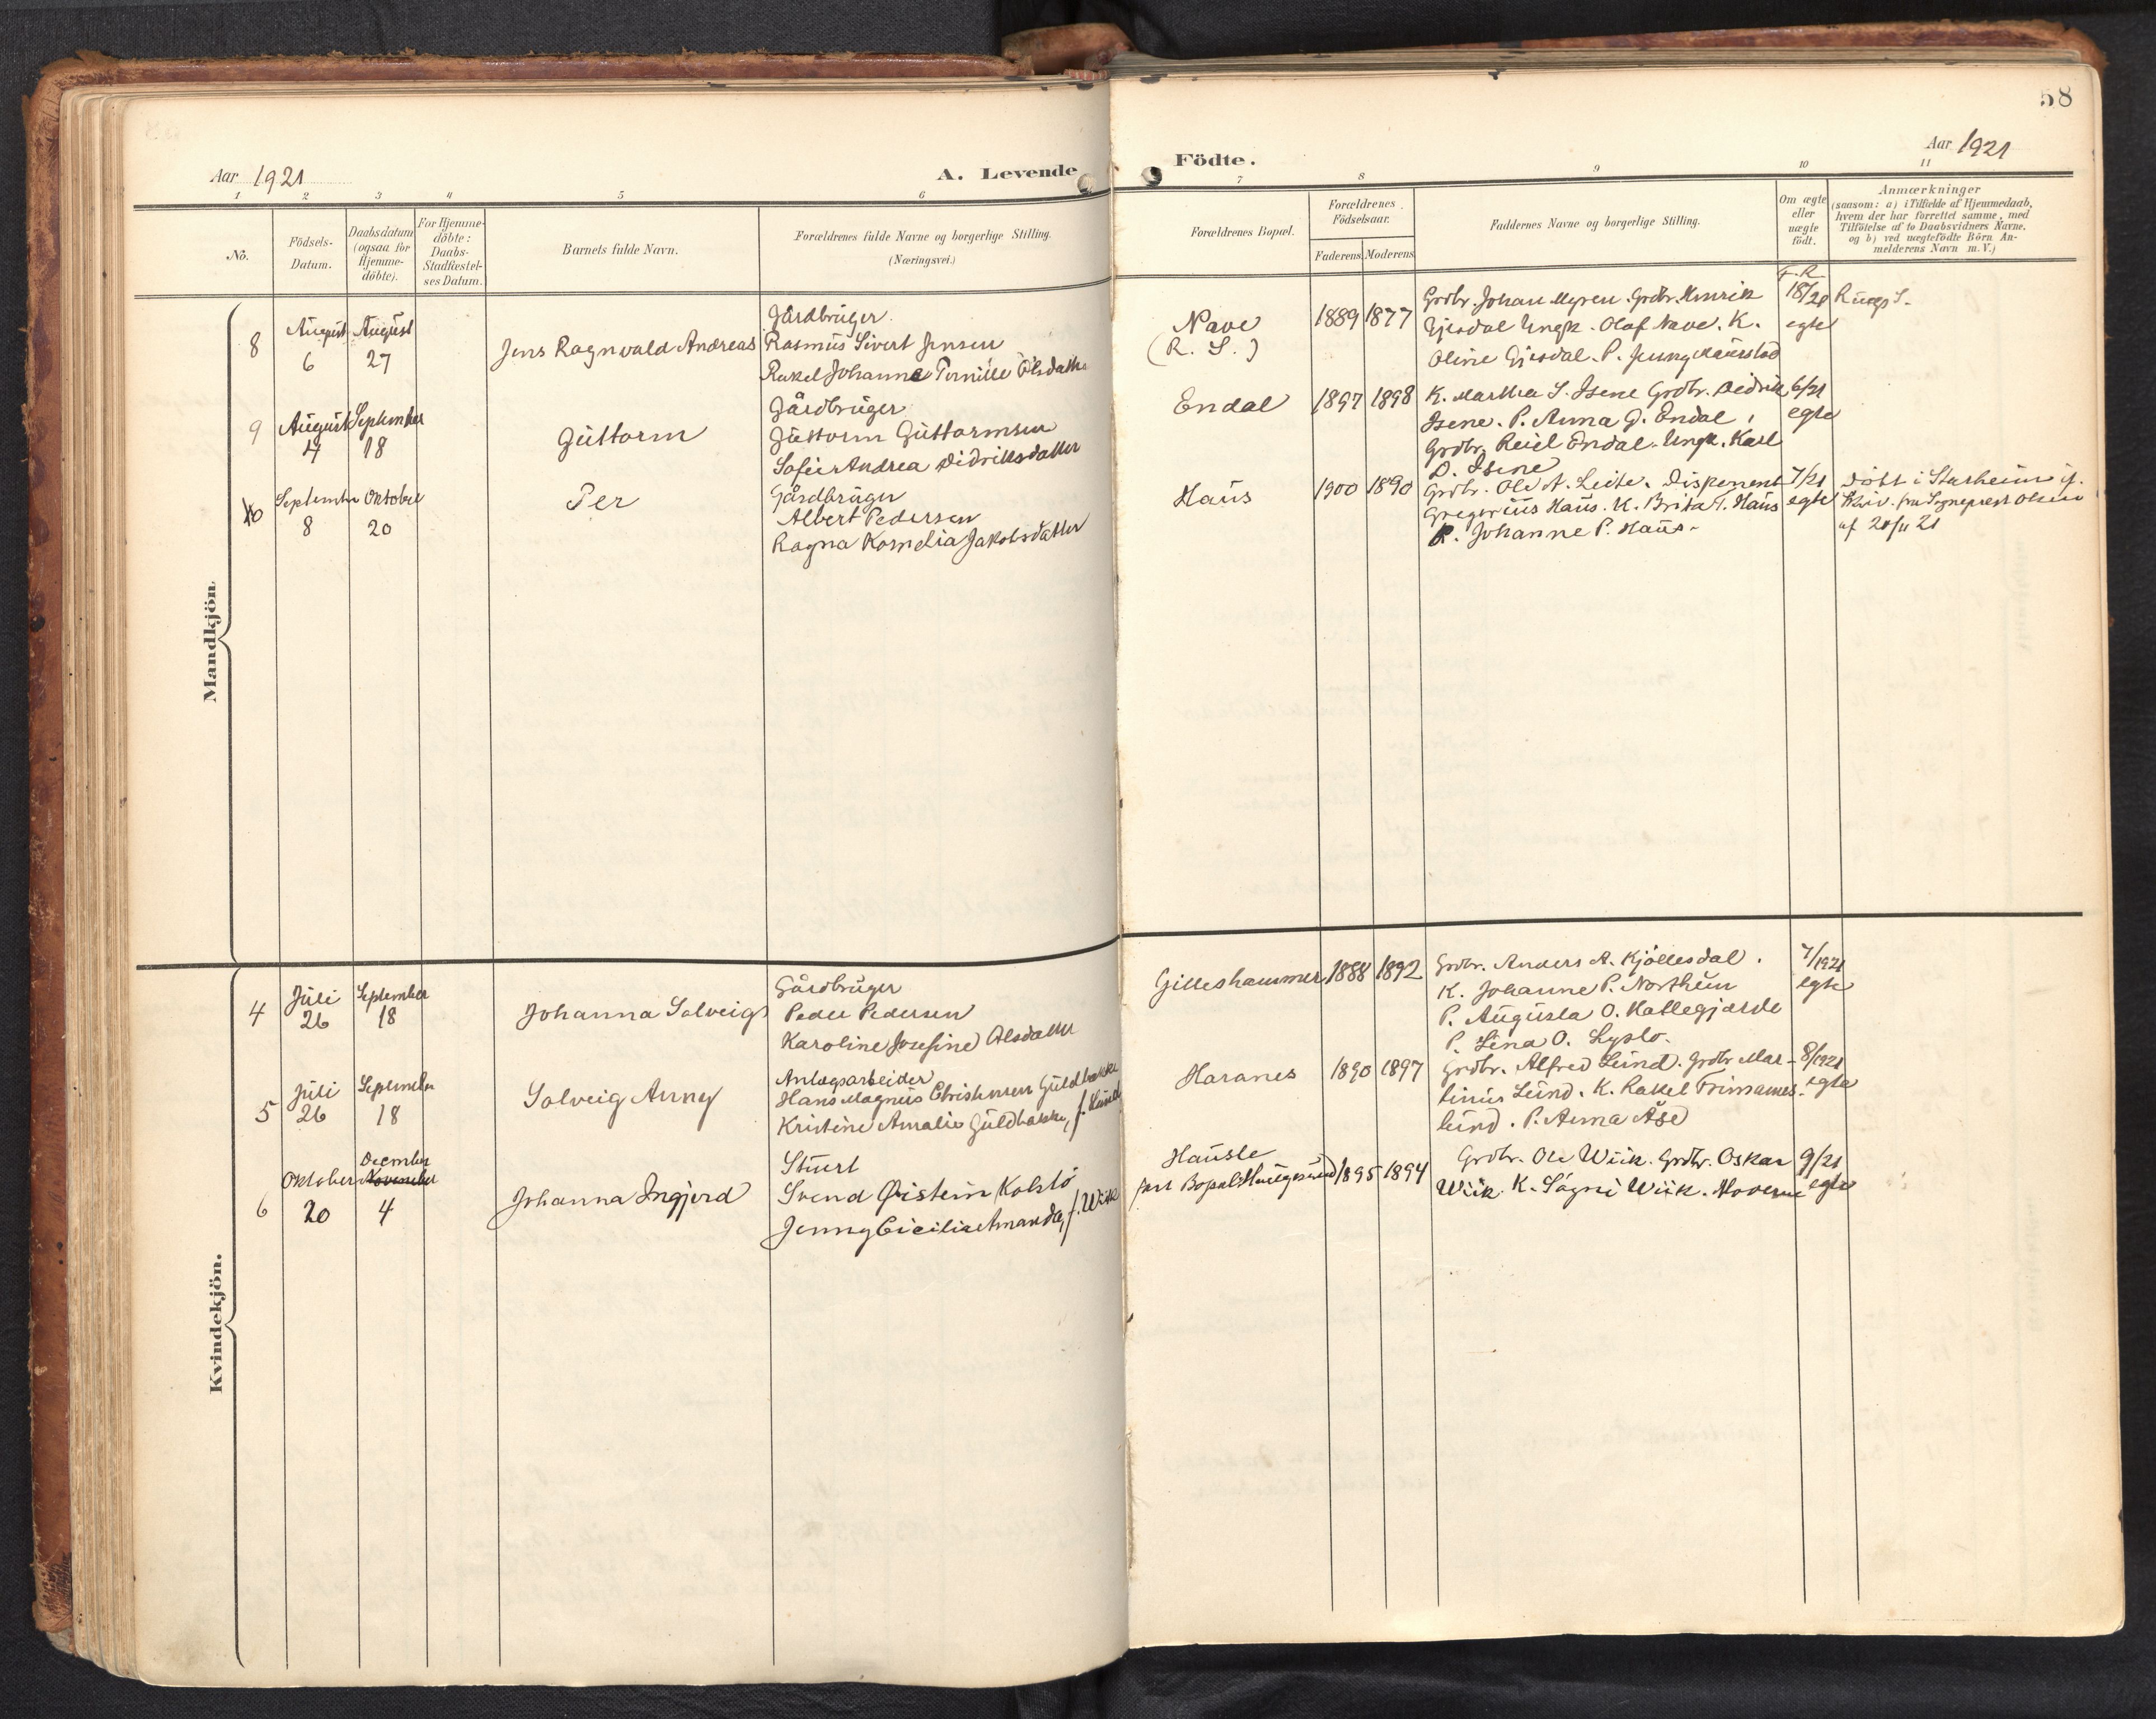 58
Aar 1921
A. Levende
Födte.
Aar 1921
1 2 3 4 5 6
7 8 9 10 11
No.
Födsels-
Datum.
Daabsdatum
(ogsaa for
Hjemme-
döbte).
For Hjemme-
döbte:
Daabs-
Stadfæstel-
ses Datum.
Barnets fulde Navn.
Forældrenes fulde Navne og borgerlige Stilling.
(Næringsvei.)
Forældrenes Bopæl.
Forældrenes
Födselsaar.
Faderens Moderens
Faddernes Navne og borgerlige Stilling.
Om ægte
eller
uægte
födt.
Anmærkninger
(saasom: a) i Tilfælde af Hjemmedaab,
hvem der har forrettet samme, med
Tilföielse af to Daabsvidners Navne,
og b) ved uægtefödte Börn An-
melderens Navn m. V.)
Mandkjön
8
August
6
August
27
Jens Ragnvald Andreas
Gårdbruger
Rasmus Sivert Jensen
Rakel Johanne Pernille Olsdatter
Nave
(R. S.)
1889 1877
Grdbr. Johan Myren. Grdbr. Henrik
Gjesdal Ungk. Olaf Nave. K.
Oline Gjesdal. P. Jenny Maurstad
F. R.
18/21
egte
9
August
4
September
18
Guttorm
Gårdbruger
Guttorm Guttormsen
Sofie Andrea Didriksdatter
Endal
1897 1898
K. Martha S. Isene Grdbr. Didrik
Isene. P. Anna G. Endal.
Grdbr. Reiel Endal. Ungk. Karl
D. Isene
6/21
egte
10
September
8
Oktober
20
Per
Gårdbruger
Albert Pedersen
Ragna Kornelia Jakobsdatter
Haus
1900 1890
Grdbr. Ole A. Leite. Disponent
Gregorius Haus. K. Brita T. Haus
P. Johanne P. Haus.
7/21
egte
Döbt i Starheim if.
Skriv. fra Sogneprest Olsen
af 20/11 21
Kvindekjön.
4
Juli
26
September
18
Johanna Solveig
Gårdbruger
Peder Pedersen
Karoline Josefine Olsdatter
Gilleshammer
1888 1892
Grdbr. Anders A. Kjöllesdal.
K. Johanne P. Northun
P. Augusta O. Hatlegjærde
P. Lina O. Lyslo.
7/1921
egte
5
Juli
26
September
18
Solveig Anny
Anlægsarbeider
Hans Magnus Christensen Guldbakke
Kristine Amalie Guldbakke, f. Lund
Haranes
1890 1897
Grdbr. Alfred Lund. Grdbr. Mar-
tinus Lund. K. Rakel Trinanes-
lund. P. Anna Åse
8/1921
egte
6
Oktober
20
December
November
4
Johanna Ingjerd
Stuert
Svend Øistein Kolstö
Jenny Cicilie Amanda, f. Wiik
Hausle
fast Bopæl Haugesund
1895 1894
Grdbr. Ole Wiik. Grdbr. Oskar
Wiik. K. Sågni Wiik. Moderen
9/21
egte